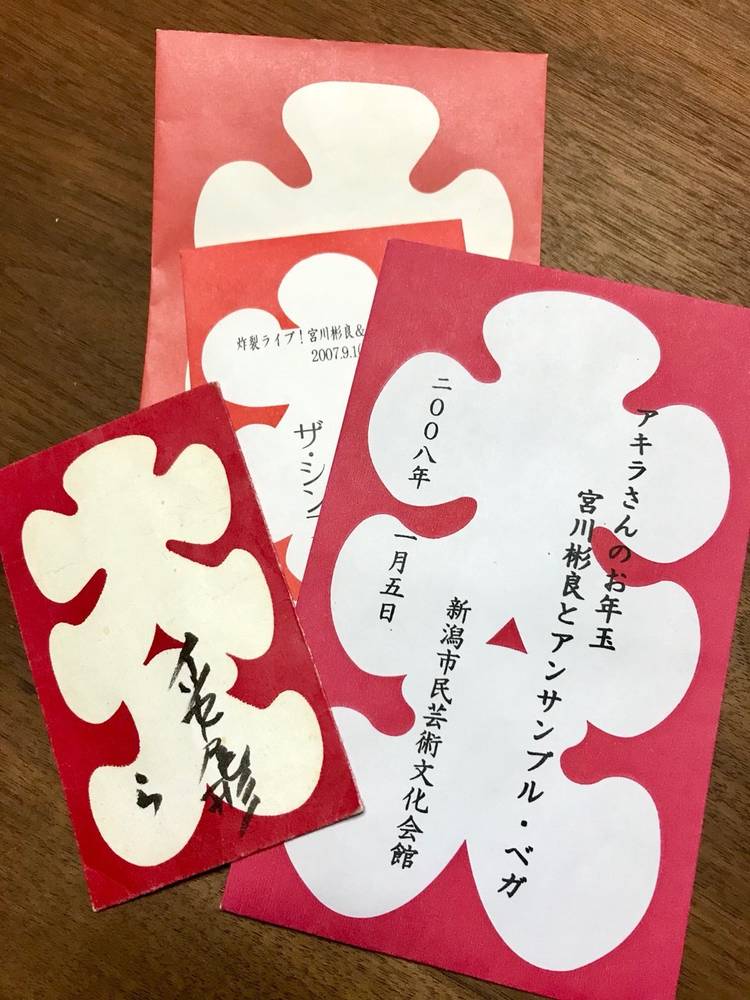 炸裂ライブ！宮川彬良＆
2007.9.1
ザ・シン
アキラさんのお年玉
宮川彬良とアンサンブル・ベガ
二〇〇八年 一月五日
新潟市民芸術文化会館